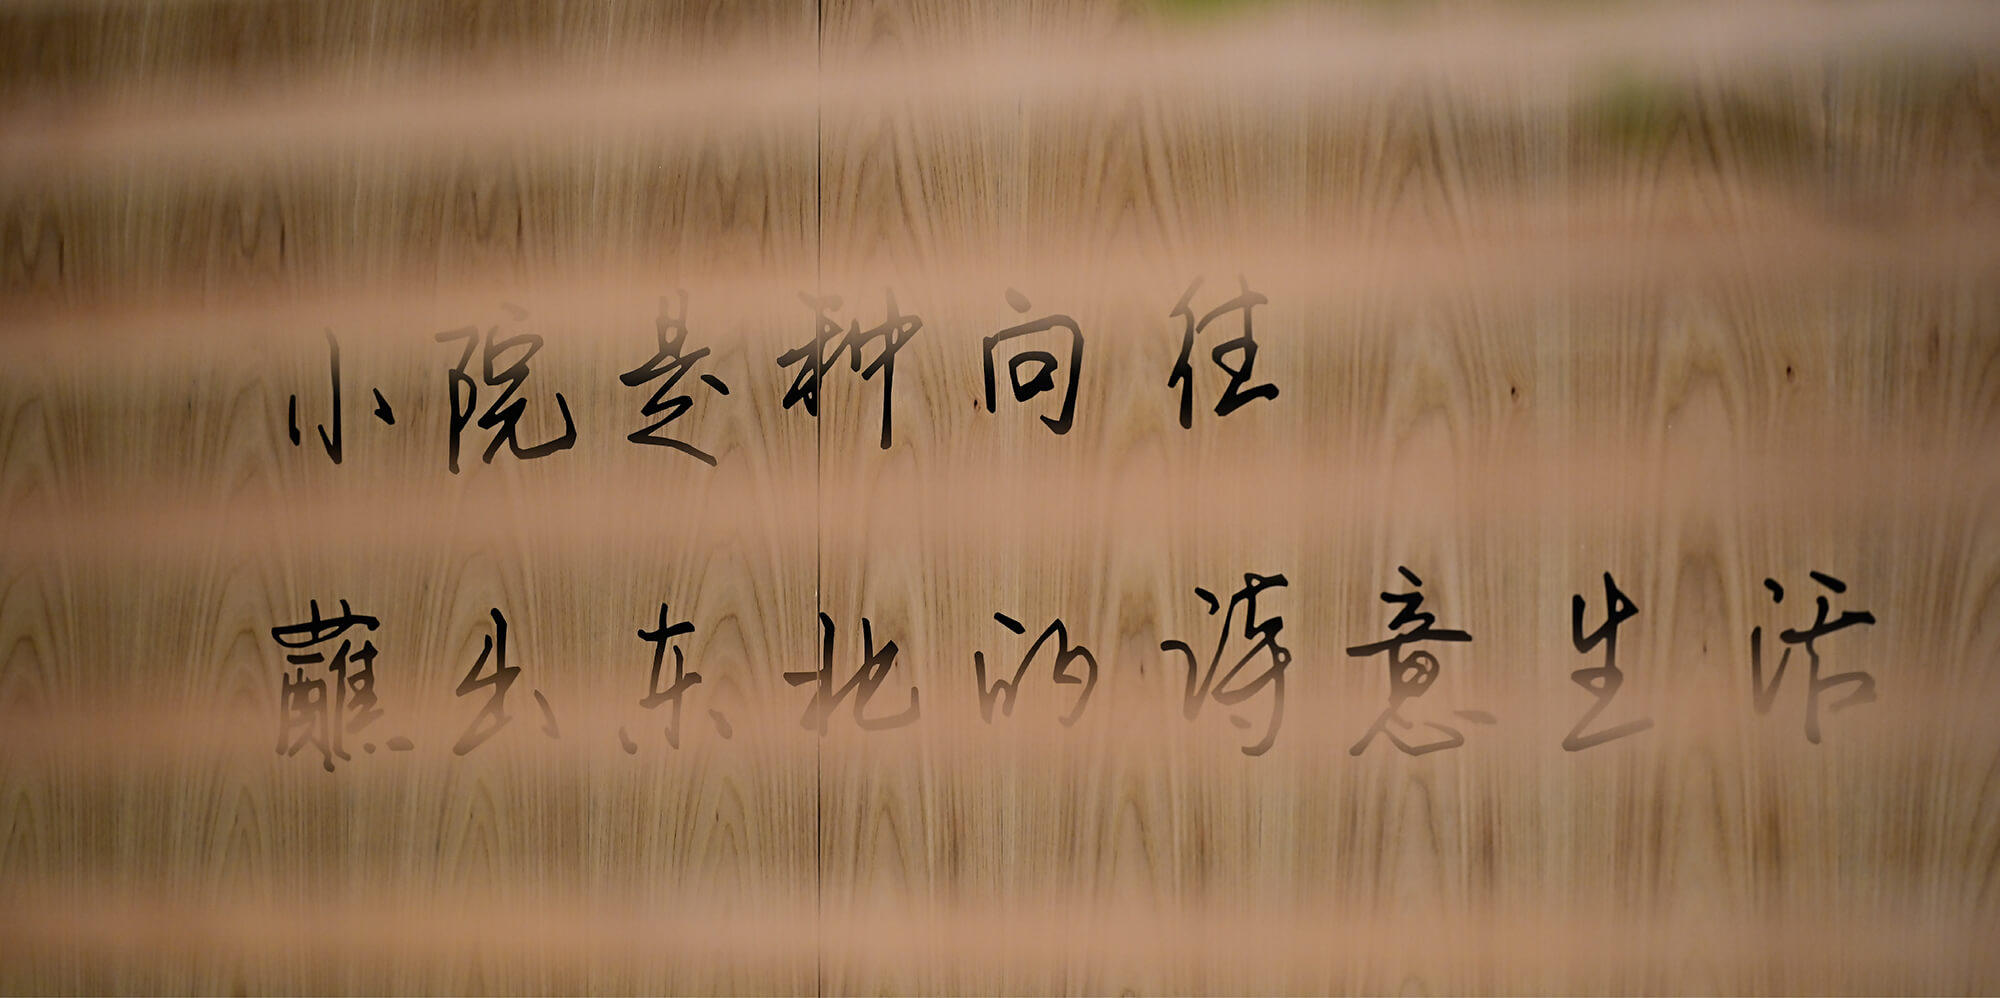 小院是种向往
蘸出东北的诗意生活